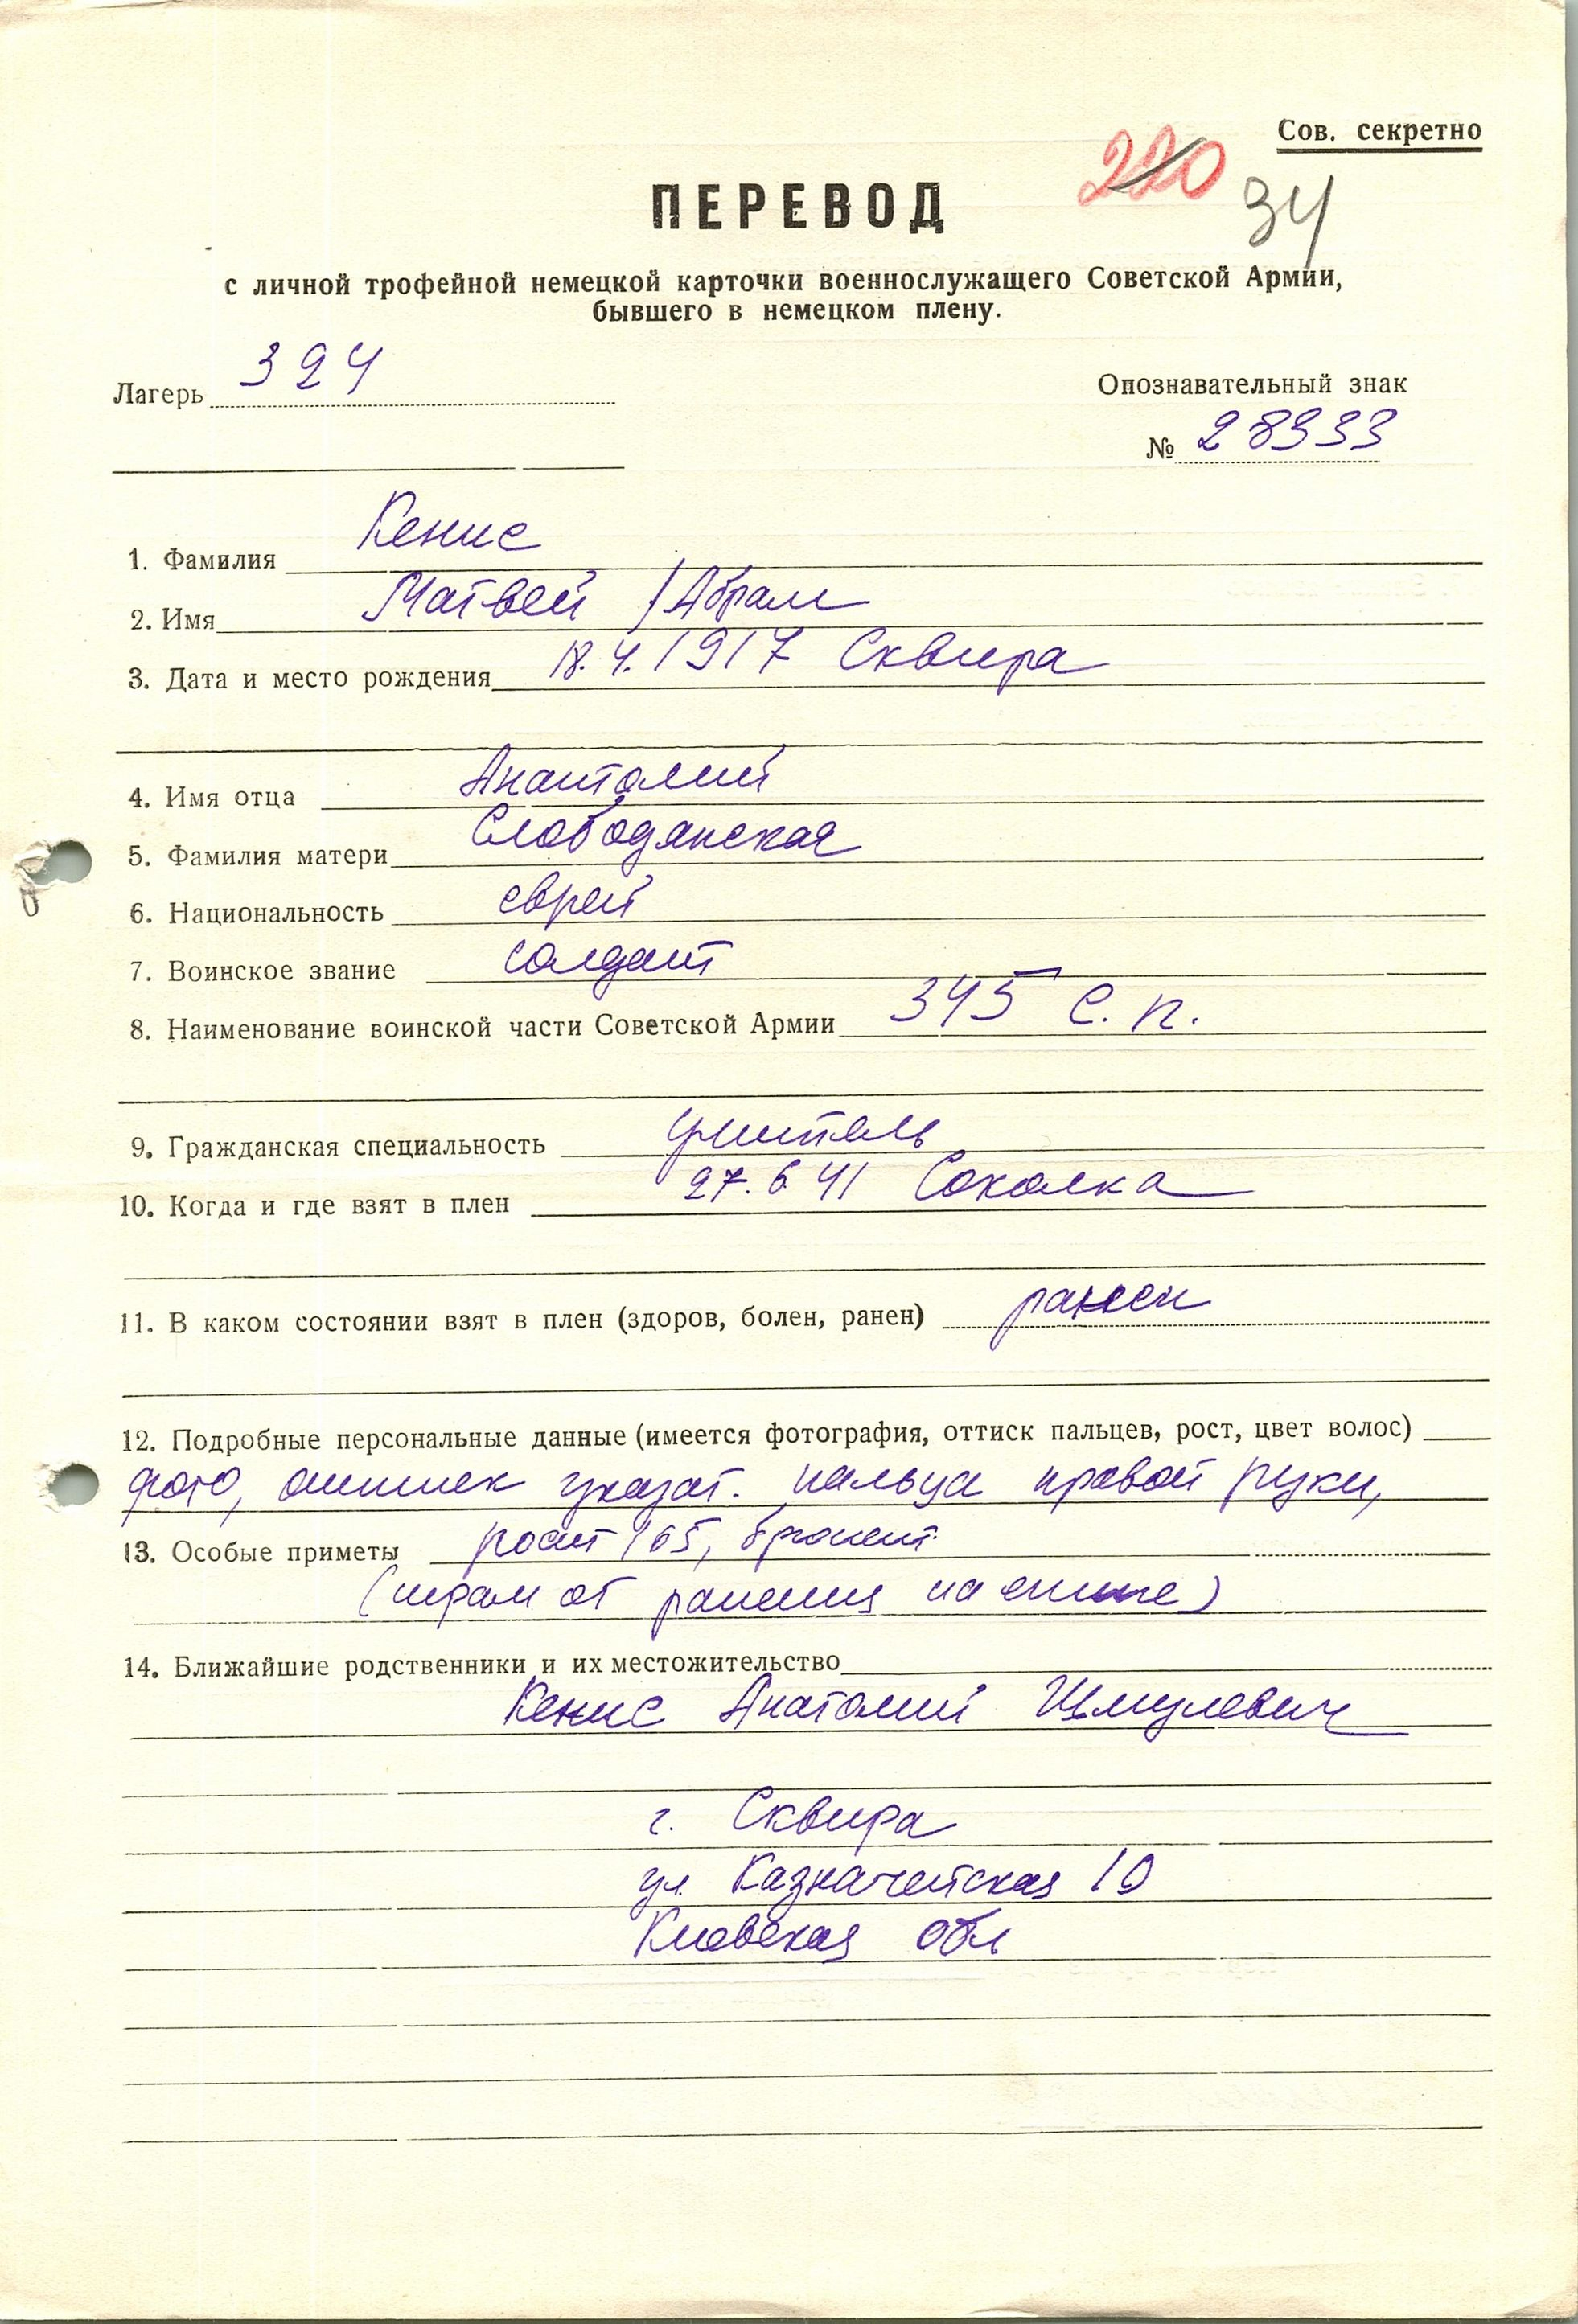 Сов. секретно
220
34
ПЕРЕВОД
с личной трофейной немецкой карточки военнослужащего Советской Армии,
бывшего в немецком плену.
Лагерь 324
Опознавательный знак
№ 28933
1. Фамилия Кенис
2. Имя Матвей /Абрам
3. Дата и место рождения 18.4.1917 Сквира
4. Имя отца Анатолий
5. Фамилия матери Слободянская
6. Национальность еврей
7. Воинское звание солдат
8. Наименование воинской части Советской Армии 345 с.п.
9. Гражданская специальность учитель
10. Когда и где взят в плен 27.6.41 Соколка
11. В каком состоянии взят в плен (здоров, болен, ранен) ранен
12. Подробные персональные данные (имеется фотография, оттиск пальцев, рост, цвет волос)
фото, оттиск указат. пальца правой руки,
13. Особые приметы рост 165, брюнет
(шрам от ранения на спине)
14. Ближайшие родственники и их местожительство
Кенис Анатолий Шмулевич
г. Сквира
ул Казначейская 10
Киевская обл